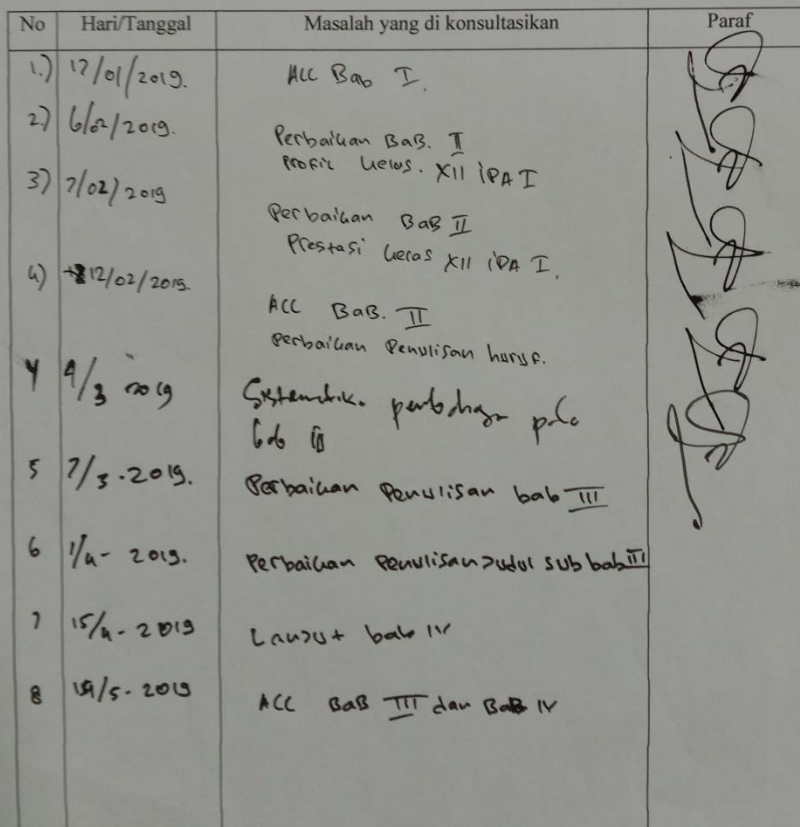 No Hari/Tanggal Masalah yang di konsultasikan Paraf
1.) 17/01/2019. ACC Bab I.
2) 6/02/2019. Perbaikan BaB. II
Profil kelas. XII iPA I
3) 7/02/2019 Perbaikan BaB II
Prestasi kelas XII iPA I.
4) 12/02/2019. ACC BaB. II
Perbaikan Penulisan huruf.
4 4/3 2019 Sistematika pembahasan pada
bab II
5 7/3-2019. Perbaikan Penulisan bab III
6 1/4- 2019. Perbaikan Penulisan Judul sub bab III
7 15/4- 2019 Lanjut bab IV
8 /5-2019 ACC BaB III dan BaB IV